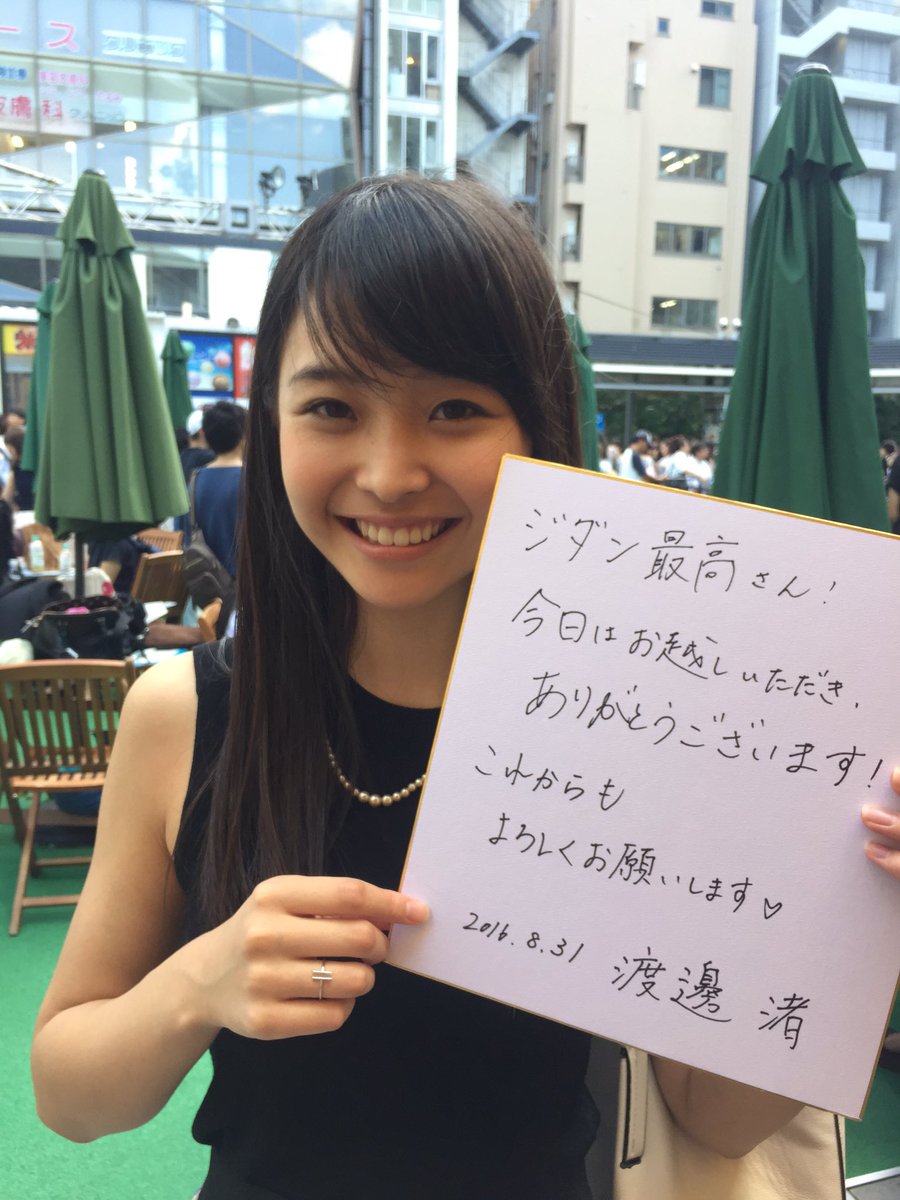 ース
クリニック
膚科
ジダン最高さん!
今日はお越しいただき、
ありがとうございます!
これからも
よろしくお願いします♡
2016.8.31 渡邊 渚